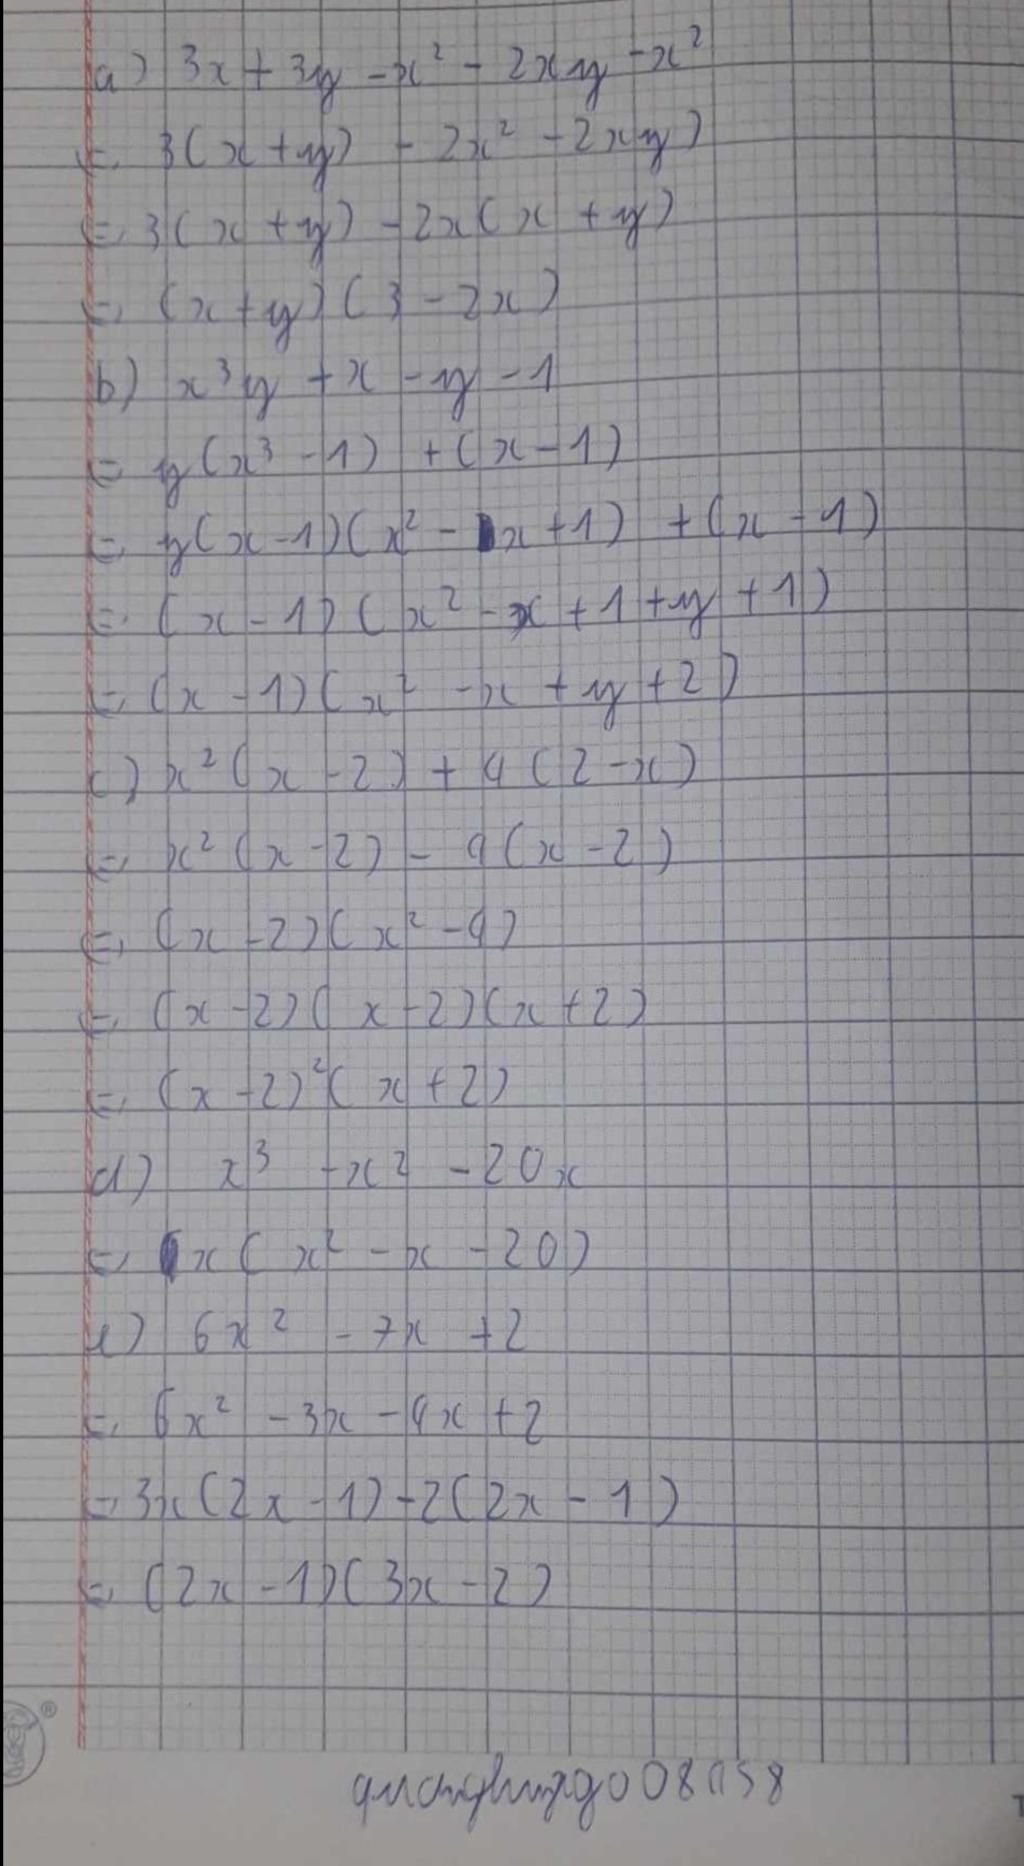 a) 3x + 3y - x² - 2xy - x²
= 3(x + y) - 2x² - 2xy)
= 3(x + y) - 2x(x + y)
= (x + y)(3 - 2x)
b) x³y + x - y - 1
= y(x³ - 1) + (x - 1)
= y(x - 1)(x² - x + 1) + (x - 1)
= (x - 1)(x² - x + 1 + y + 1)
= (x - 1)(x² - x + y + 2)
c) x²(x - 2) + 4(2 - x)
= x²(x - 2) - 4(x - 2)
= (x - 2)(x² - 4)
= (x - 2)(x - 2)(x + 2)
= (x - 2)²(x + 2)
d) x³ - x² - 20x
= x(x² - x - 20)
e) 6x² - 7x + 2
= 6x² - 3x - 4x + 2
= 3x(2x - 1) - 2(2x - 1)
= (2x - 1)(3x - 2)